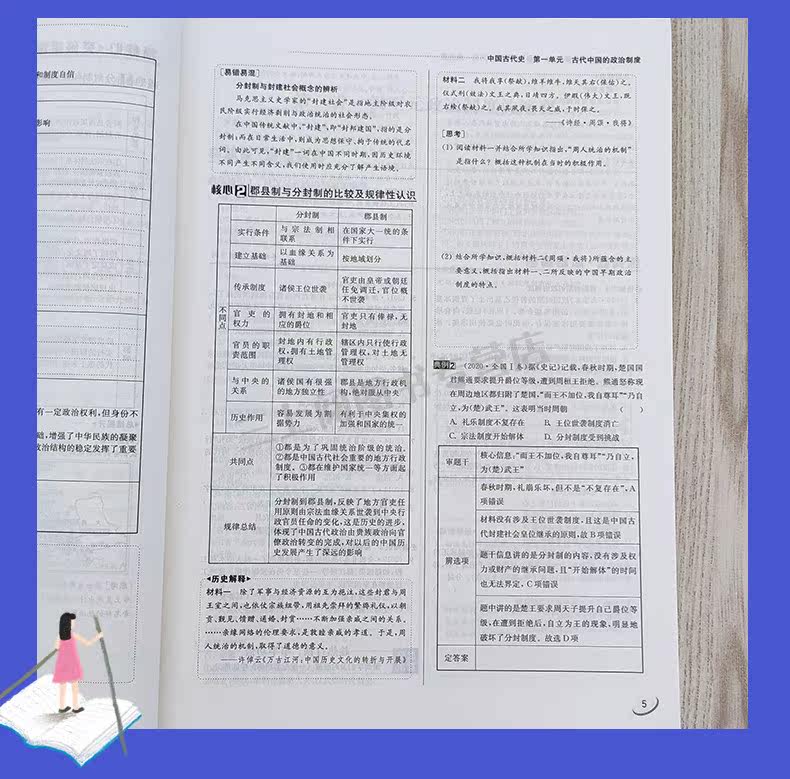 和制度自信
影响
有一定政治权利,但身份不
础,增强了中华民族的凝聚
政治结构的稳定发挥了重要
中国古代史 第一单元 古代中国的政治制度
[易错易混]
分封制与封建社会概念的辨析
马克思主义史学家的“封建社会”是指地主阶级对农
民阶级实行经济剥削与政治统治的社会形态。
在中国传统文献中,“封建”,即“封邦建国”,指的是分
封制;而在日常生活中,则成为思想保守、拘于传统的代名
词。由此可见,“封建”一词在中国不同时期,因历史环境
不同产生不同含义,我们使用时应充分了解产生语境。
核心2 郡县制与分封制的比较及规律性认识
分封制 郡县制
不同点
实行条件 与宗法制相联系 在国家大一统的条件下实行
建立基础 以血缘关系为基础 按地域划分
传承制度 诸侯王位世袭 官吏由皇帝或朝廷任免调迁,官位概不世袭
官吏的权力 拥有封地和相应的爵位 官吏只有俸禄,无封地
官员的职责范围 封地内有行政权,拥有土地管理权 辖区内只行使行政管理权,对土地无管理权
与中央的关系 诸侯国有很强的地方独立性 郡县是地方行政机构,绝对服从中央
历史作用 容易发展为割据势力 有利于中央集权的加强和国家的统一
共同点 ①都是为了巩固统治阶级的统治。
②都是中国古代社会重要的地方行政
制度。③都在维护国家统一等方面起
了积极作用
规律总结 分封制到郡县制,反映了地方官吏任
用原则由宗法血缘关系世袭到中央行
政官员任命的变化,这是历史的进步,
体现了中国古代政治由贵族政治向官
僚政治转变的完成,对以后的中国历
史发展产生了深远的影响
历史解释
材料一 除了军事与经济资源的互为挹注,这些封君与周
王室之间,也依仗宗族纽带,用祖先崇拜的繁缛礼仪,以朝
贡、觐见、馈赠、通婚、封赏……不断加强亲戚之间的关系。
……亲缘网络的伦理要求,是敦睦亲戚的孝道。于是,周
人统治的机制,取得了道德的意义。
——许倬云《万古江河:中国历史文化的转折与开展》
材料二 我将我享(祭献),维羊维牛,维天其右(保佑)之。
仪式刑(效法)文王之典,日靖四方。伊嘏(伟大)文王,既
右飨(祭献)之。我其夙夜,畏天之威,于时保之。
——《诗经·周颂·我将》
[思考]
(1) 阅读材料一并结合所学知识指出,“周人统治的机制”
是指什么?概括这种机制在当时的积极作用。
(2) 结合所学知识,概括材料二《周颂·我将》所蕴含的主
要意义,概括指出材料一、二所反映的中国早期政治
制度的特点。
典例2 (2020·全国Ⅰ卷)据《史记》记载,春秋时期,楚国国
君熊通要求提升爵位等级,遭到周桓王拒绝。熊通怒称现
在周边地区都归附了楚国,“而王不加位,我自尊耳”“乃自
立,为(楚)武王”。这表明当时周朝 ( )
A. 礼乐制度不复存在 B. 王位世袭制度消亡
C. 宗法制度开始解体 D. 分封制度受到挑战
审题干 核心信息:“而王不加位,我自尊耳”“乃自立,
为(楚)武王”
辨选项 春秋时期,礼崩乐坏,但不是“不复存在”,A
项错误
材料没有涉及王位世袭制度,且这是中国古
代封建社会皇位继承的原则,故B项错误
题干信息讲的是分封制的内容,没有涉及权
力或财产的继承问题,且“开始解体”的时间
也无法界定,C项错误
题中讲的是楚王要求周天子提升自己爵位等
级,在遭到拒绝后,自立为王的现象,明显地
破坏了分封制度。故选D项
定答案
5